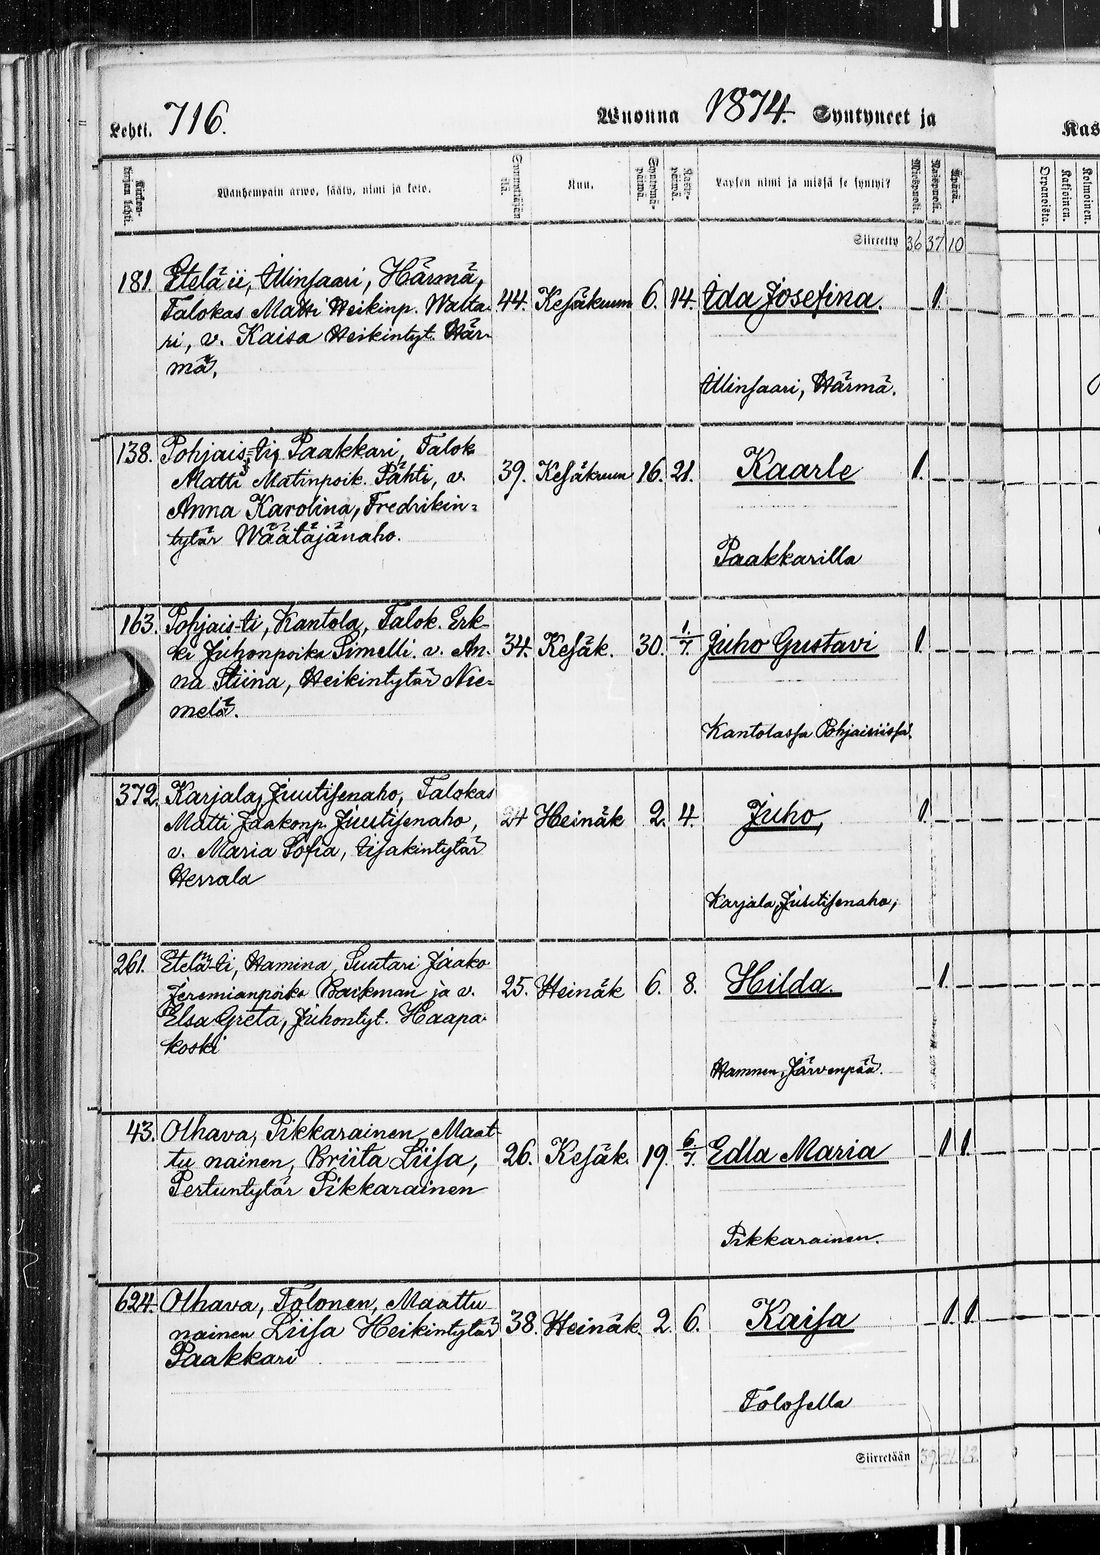 Lehti. 716. Wuonna 1874. Syntyneet ja
Kas
Kirkonkirjan lehti.
Wanhempain arwo, sääty, nimi ja koto.
Synnyttäjän ikä.
Kuu.
Syntymäpäiwä.
Kastepäiwä.
Lapsen nimi ja missä se syntyi?
Miespuoli.
Naispuoli.
Äpärä.
Orpanoista.
Kaksoinen.
Kolmoinen.
Siirretty 36 37 10
181. Etelä ii, Illinsaari, Härmä, 44. Kesäkuun 6. 14. Ida Josefina. 1
Talokas Matti Heikinp. Walta-
ri, v. Kaisa Heikintyt. Här-
mä,
Illinsaari, Härmä.
138. Pohjais-Ii, Paakkari, Talok. 39. Kesäkuun 16. 21. Kaarle 1.
Matti Matinpoik. Pahti, v.
Anna Karolina, Fredrikin-
tytär Wäätäjänaho.
Paakkarilla
163. Pohjais-Ii, Kantola, Talok. Erk- 34. Kesäk. 30. 1/7. Juho Gustavi 1
ki Juhonpoika Simelli. v. An-
na Stiina, Heikintytär Nie-
melä.
Kantolassa Pohjaisiissä.
372. Karjala, Juutisenaho, Talokas 24 Heinäk 2. 4. Juho, 1
Matti Jaakonp. Juutisenaho,
v. Maria Sofia, Iisakintytär
Herrala
Karjala, Juutisenaho,
261. Etelä-Ii, Hamina, Suutari Jaako 25. Heinäk 6. 8. Hilda. 1.
Jeremianpoika Backman ja v.
Elsa Greta, Juhontyt. Haapa-
koski
Hamnen, Järvenpää.
43. Olhava, Pikkarainen, Maat- 26. Kesäk. 19. 6/7. Edla Maria 1 1.
tu nainen, Briita Liisa,
Pertuntytär Pikkarainen
Pikkarainen.
624. Olhava, Tolonen, Maattu 38. Heinäk. 2. 6. Kaisa 1 1.
nainen Liisa Heikintytär
Paakkari
Tolosella
Siirretään 39